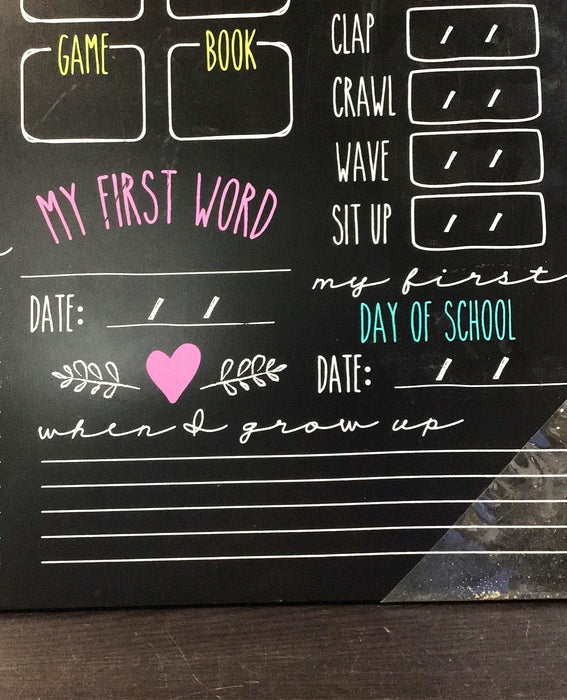 GAME
BOOK
MY FIRST WORD
DATE: / /
when I grow up
CLAP / /
CRAWL / /
WAVE / /
SIT UP / /
my first
DAY OF SCHOOL
DATE: / /